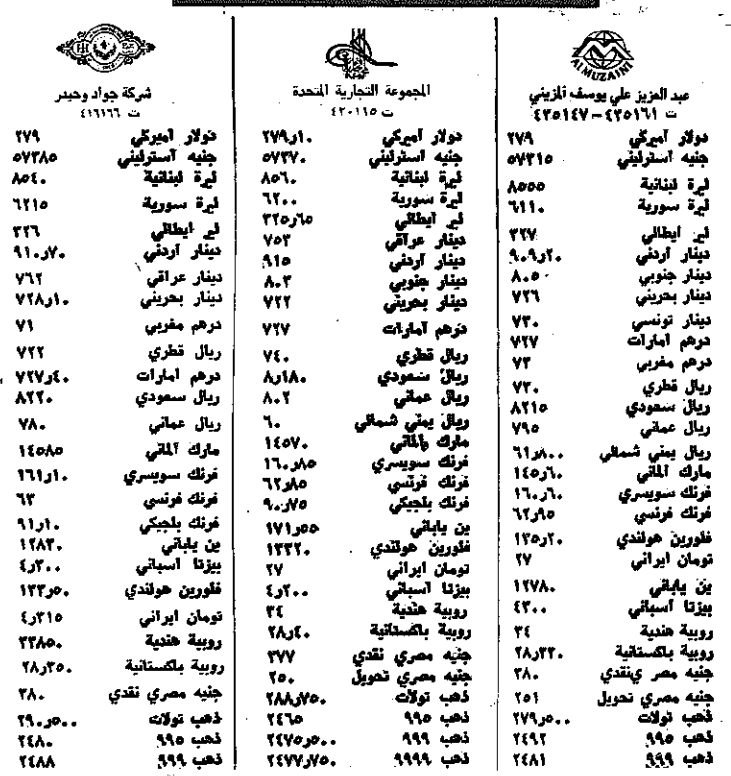 ALMUZAINI
عبد العزيز علي يوسف المزيني
ت ٤٣٥١٦١ - ٤٣٥١٤٧
دولار أميركي ٢٧٩
جنيه استرليني ٥٧٣١٥
ليرة لبنانية ٨٥٥٥
ليرة سورية ٦١١٠
لير ايطالي ٣٢٧
دينار أردني ٩٠٩٫٢٠
دينار جنوبي ٨٠٥٠
دينار بحريني ٧٢٦
دينار تونسي ٧٣٠
درهم امارات ٧٢٧
درهم مغربي ٧٣
ريال قطري ٧٣٠
ريال سعودي ٨٢١٥
ريال عماني ٧٩٥
ريال يمني شمالي ٦١ر٨٠٠
مارك الماني ١٤٥ر٦٠
فرنك سويسري ١٦٠ر٦٠
فرنك فرنسي ٦٢ر٩٥
فلورين هولندي ١٣٥ر٢٠
تومان ايراني ٢٧
ين ياباني ١٢٧٨٠
بيزتا أسباني ٤٣٠٠
روبية هندية ٣٤
روبية باكستانية ٢٨ر٣٢٠
جنيه مصر ينقدي ٣٨٠
جنيه مصري تحويل ٢٥١
ذهب تولات ٢٧٩ر٥٠٠
ذهب ٩٩٥ ٢٤٩٢
ذهب ٩٩٩ ٢٤٨١
المجموعة التجارية المتحدة
ت ٤٢٠١١٥
دولار أميركي ٢٧٩ر١٠
جنيه استرليني ٥٧٣٧٠
ليرة لبنانية ٨٥٦٠
ليرة سورية ٦٢٠٠
لير ايطالي ٣٢٥ر٦٥
دينار عراقي ٧٥٣
دينار أردني ٩١٥
دينار جنوبي ٨٠٣
دينار بحريني ٧٢٢
درهم امارات ٧٢٧
ريال قطري ٧٤٠
ريال سعودي ٨ر١٨٠
ريال عماني ٨٠٢
ريال يمني شمالي ٦٠
مارك ١٤٥٧٠
فرنك سويسري ١٦٠ر٨٥
فرنك فرنسي ٦٢ر٨٥
فرنك بلجيكي ٩٠ر٧٥
ين ياباني ١٧١ر٥٥
فلورين هولندي ١٣٣٢٠
تومان ايراني ٢٧
بيزتا أسباني ٤ر٢٠٠
روبية هندية ٣٤
روبية باكستانية ٢٨ر٤٠
جنيه مصري نقدي ٣٧٧
جنيه مصري تحويل ٢٥٠
ذهب تولات ٢٨٨ر٧٥٠
ذهب ٩٩٥ ٢٤٦٥
ذهب ٩٩٩ ٢٤٧٥ر٥٠٠
ذهب ٩٩٩٩ ٢٤٧٧ر٧٥٠
شركة جواد وحيدر
ت ٤١٦١٦٦
دولار أميركي ٢٧٩
جنيه استرليني ٥٧٣٨٥
ليرة لبنانية ٨٥٤٠
ليرة سورية ٦٢١٥
لير ايطالي ٣٢٦
دينار أردني ٩١٠ر٧٠
دينار عراقي ٧٦٢
دينار بحريني ٧٢٨ر١٠
درهم مغربي ٧١
ريال قطري ٧٢٢
درهم امارات ٧٢٧ر٤٠
ريال سعودي ٨٢٢٠
ريال عماني ٧٨٠
مارك الماني ١٤٥٨٥
فرنك سويسري ١٦١ر١٠
فرنك فرنسي ٦٣
فرنك بلجيكي ٩١ر١٠
ين ياباني ١٢٨٣٠
بيزتا أسباني ٤ر٣٠٠
فلورين هولندي ١٣٣ر٥٠
تومان ايراني ٤ر٣١٥
روبية هندية ٣٣٨٥٠
روبية باكستانية ٢٨ر٣٥٠
جنيه مصري نقدي ٣٨٠
ذهب تولات ٢٩٠ر٥٠٠
ذهب ٩٩٥ ٢٤٨٠
ذهب ٩٩٩ ٢٤٨٨